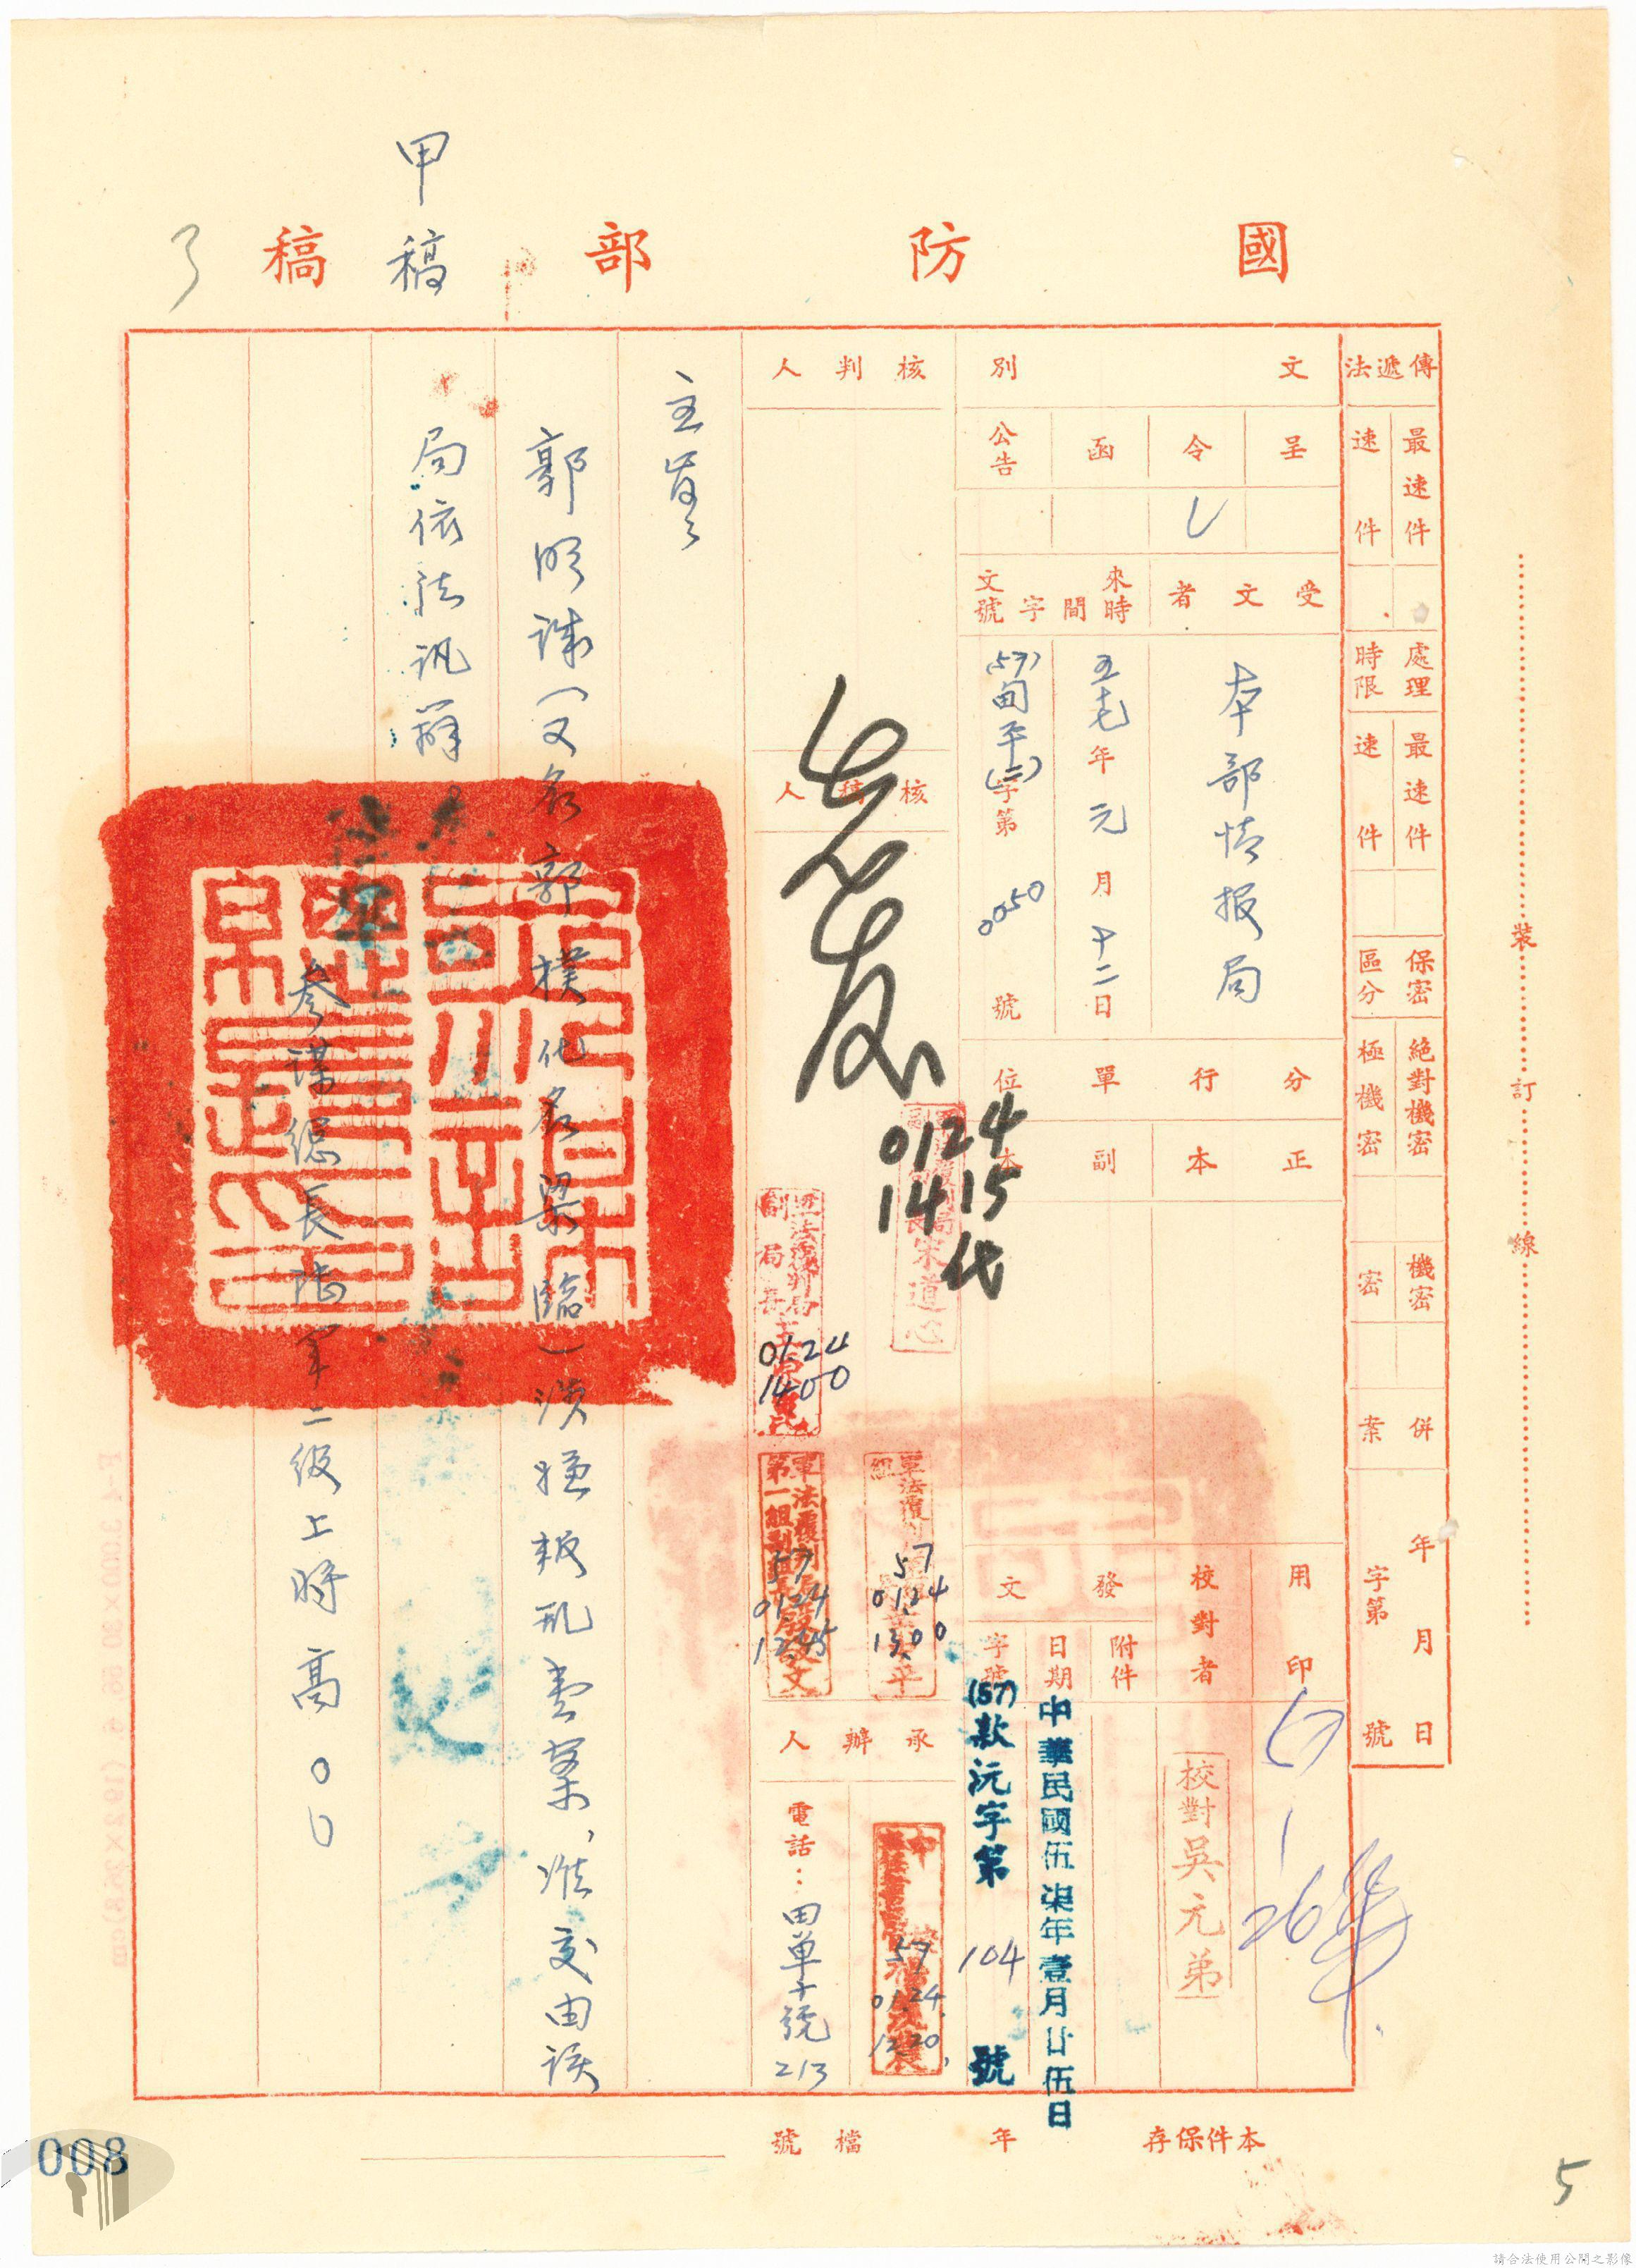 甲稿
國防部稿
傳遞法
最速件
速件
處理時限
最速件
速件
保密區分
絕對機密
極機密
機密
密
併案
年月日
字第號
文別
呈
令
函
公告
受文者
本部情報局
來文時間字號
五七年元月十二日
(57)旬平(二)字第0050號
分行單位
正本
副本
用印
校對者
校對吳元弟
發文
附件
日期
中華民國伍柒年壹月廿伍日
字號
(57)歎沅字第104號
核判人
核稿人
0124
1415
代
軍法覆判局副局長宋道心
軍法覆判局副局長
0124
1400
57
0124
1300
軍法覆判局第一組副組長
57
0124
1245
承辦人
57
0124
1220
電話：田單十號213
主旨：
郭明誅（又名郭樸化名梁臨）涉嫌叛亂壹案，准交由該
局依法訊辦。
參謀總長陸軍二級上將高〇〇
裝訂線
本件保存年
檔號
008
5
請合法使用公開之影像